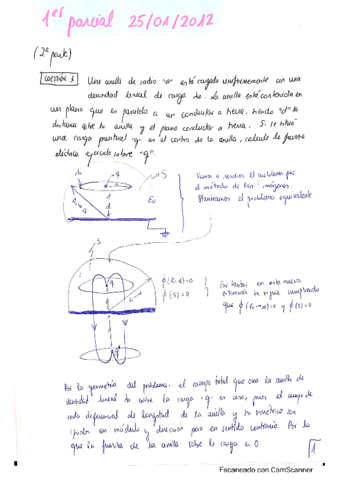 1er parcial 25/01/2012
(2ª parte)
CUESTIÓN 3 Una anilla de radio "a" está cargada uniformemente con una
densidad lineal de carga λo. La anilla está contenida
en un plano que es paralelo a un conductor a tierra, siendo "d" la
distancia entre la anilla y el plano conductor a tierra. Si se sitúa
una carga puntual "q" en el centro de la anilla, calcule la fuerza
eléctrica ejercida sobre "q".
S
Vamos a resolver el problema por
el método de las imágenes.
Planteamos el problema equivalente
λo
q
a
d
R→∞
εo
S
ϕ(R→∞)=0
ϕ(S)=0
Por tanto en esta nueva
situación se sigue cumpliendo
que ϕ(R→∞)=0 y ϕ(S)=0
R→∞
Por la geometría del problema, el campo total que crea la anilla de
densidad lineal λo sobre la carga q es cero, pues el campo de
cada diferencial de longitud de la anilla y su simétrico son
iguales en módulo y dirección pero en sentido contrario. Por lo
que la fuerza de la anilla sobre la carga es 0.
1
Escaneado con CamScanner